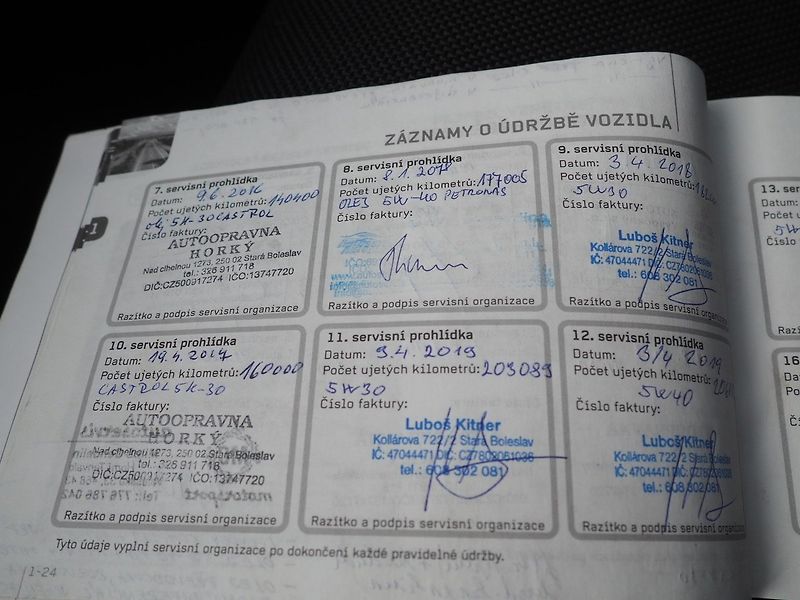 ZÁZNAMY O ÚDRŽBĚ VOZIDLA
7. servisní prohlídka
Datum: 9.6. 2016
Počet ujetých kilometrů: 140400
olej 5W-30 CASTROL
Číslo faktury:
AUTOOPRAVNA
HORKÝ
Nad cihelnou 1273, 250 02 Stará Boleslav
tel.: 326 911 718
DIČ:CZ500917274 IČO:13747720
Razítko a podpis servisní organizace
8. servisní prohlídka
Datum: 8.1. 2018
Počet ujetých kilometrů: 177005
OLEJ 5W-40 PETRONAS
Číslo faktury:
Razítko a podpis servisní organizace
9. servisní prohlídka
Datum: 3.4. 2018
Počet ujetých kilometrů:
5W30
Číslo faktury:
Luboš Kitner
Kollárova 722/2 Stará Boleslav
IČ: 47044471 DIČ: CZ7802061036
tel.: 608 302 081
Razítko a podpis servisní organizace
10. servisní prohlídka
Datum: 19.4. 2017
Počet ujetých kilometrů: 160000
CASTROL 5W-30
Číslo faktury:
AUTOOPRAVNA
HORKÝ
Nad cihelnou 1273, 250 02 Stará Boleslav
tel.: 326 911 718
DIČ:CZ500917274 IČO:13747720
Razítko a podpis servisní organizace
11. servisní prohlídka
Datum: 3.4. 2019
Počet ujetých kilometrů: 203083
5W30
Číslo faktury:
Luboš Kitner
Kollárova 722/2 Stará Boleslav
IČ: 47044471 DIČ: CZ7802061036
tel.: 608 302 081
Razítko a podpis servisní organizace
12. servisní prohlídka
Datum: 3/4 2019
Počet ujetých kilometrů:
5W40
Číslo faktury:
Luboš Kitner
Kollárova 722/2 Stará Boleslav
IČ: 47044471 DIČ: CZ7802061036
tel.: 608 302 081
Razítko a podpis servisní organizace
Tyto údaje vyplní servisní organizace po dokončení každé pravidelné údržby.
1-24
13.
Datum:
Počet
5W
Číslo
Razít
16
Dat
Po